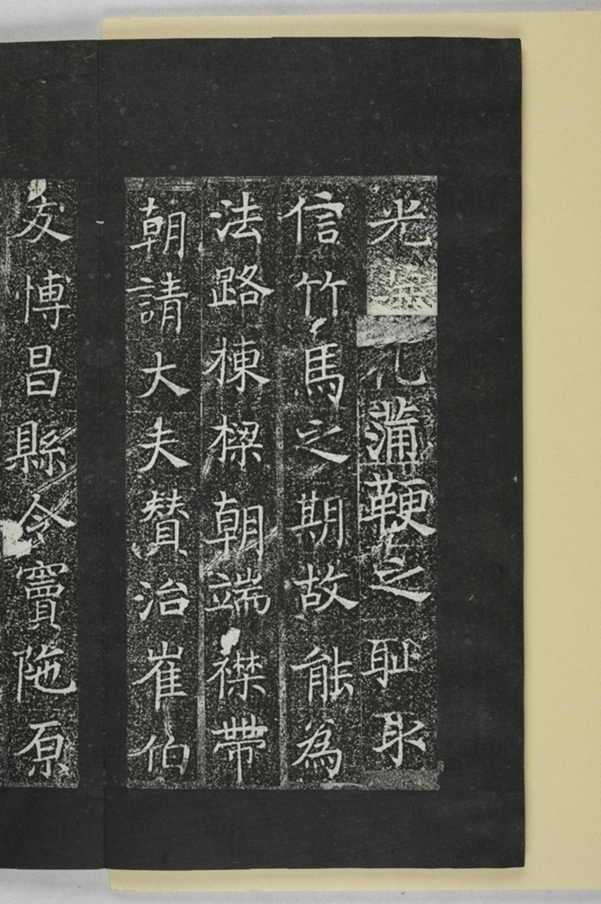 光
蒲鞭之恥取
信竹馬之期故能為
法路棟樑朝端襟帶
朝請大夫贊治崔伯
友博昌縣令竇陁原